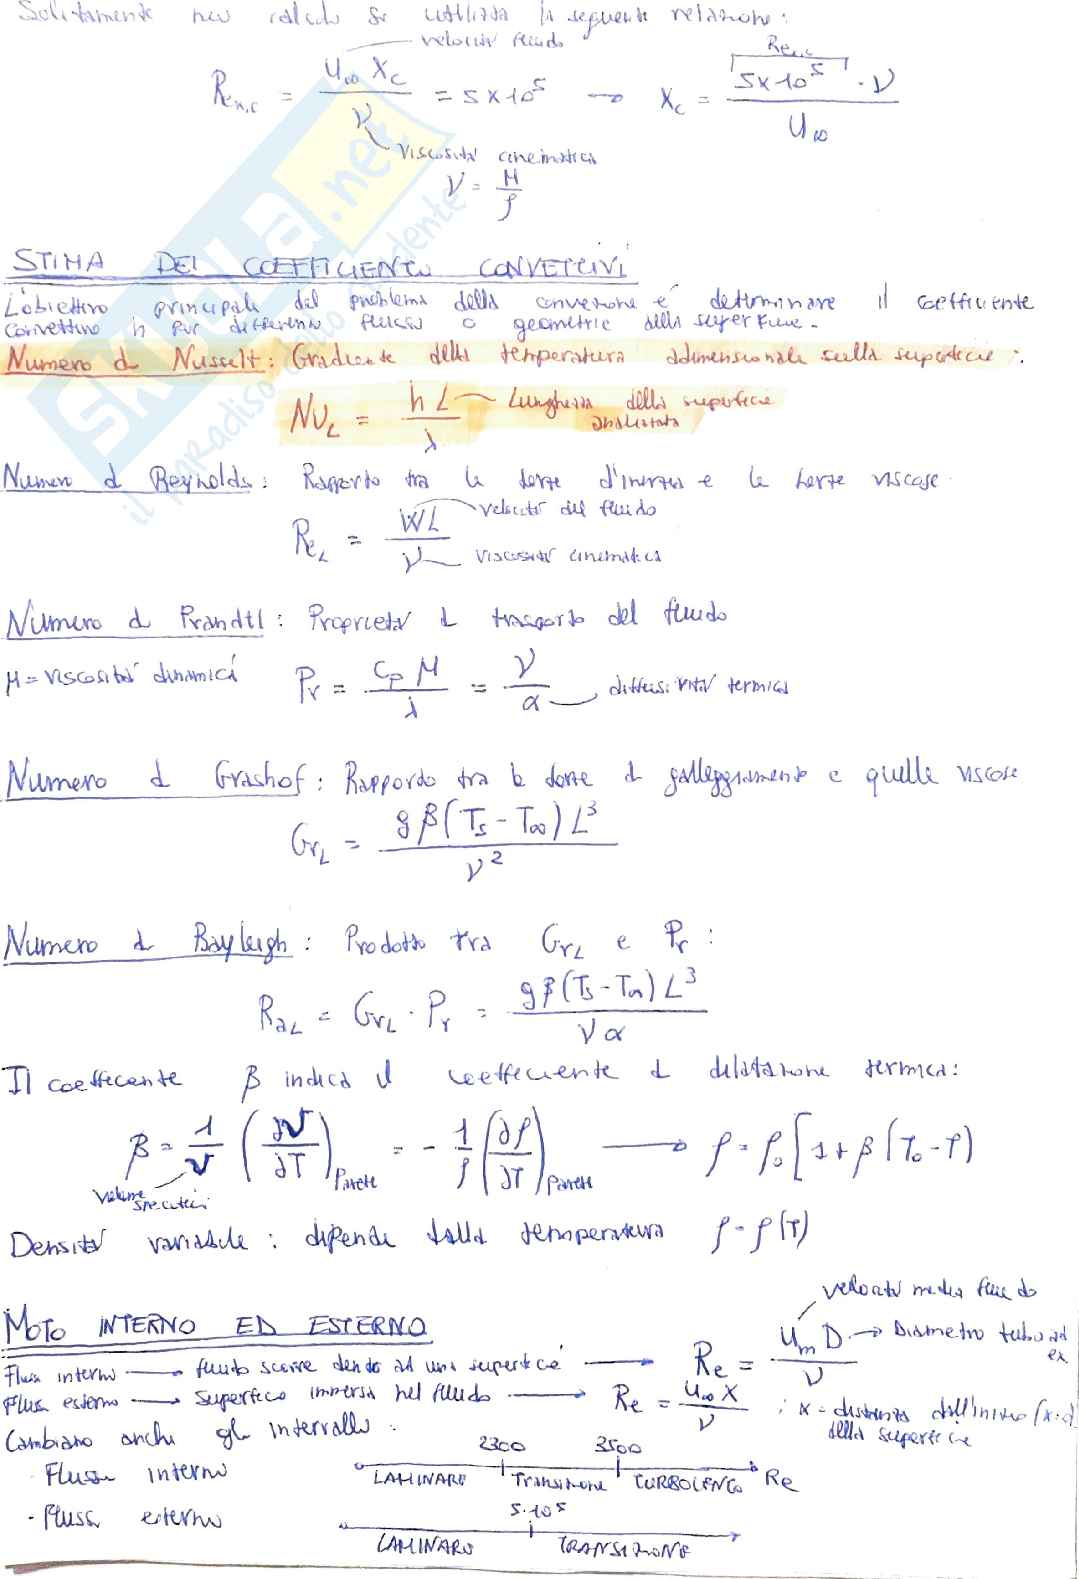 Solitamente nei calcolo si utilizza la seguente relazione:
velocità fluido
Re x,c = u∞ Xc / ν = 5×10^5 → Xc = 5×10^5 · ν / u∞
Re x,c
viscosità cinematica
ν = μ / ρ
STIMA DEI COEFFICIENTI CONVETTIVI
L'obiettivo principale del problema della convezione è determinare il coefficiente
convettivo h per differenti flusso o geometrie della superficie.
Numero di Nusselt: Gradiente della temperatura adimensionale sulla superficie:
Nu_L = h L / λ
Lunghezza della superficie
analizzata
Numero di Reynolds: Rapporto tra le forze d'inerzia e le forze viscose
Re_L = WL / ν
velocità del fluido
viscosità cinematica
Numero di Prandtl: Proprietà di trasporto del fluido
μ = viscosità dinamica
Pr = Cp μ / λ = ν / α
diffusività termica
Numero di Grashof: Rapporto tra le forze di galleggiamento e quelle viscose
Gr_L = gβ(Ts - T∞)L^3 / ν^2
Numero di Rayleigh: Prodotto tra Gr_L e Pr:
Ra_L = Gr_L · Pr = gβ(Ts - T∞)L^3 / να
Il coefficente β indica il coefficiente di dilatazione termica:
β = 1/v (∂v/∂T)Parete = - 1/ρ (∂ρ/∂T)Parete → ρ = ρ0 [1 + β (T0 - T)
volume
specifico
Densità variabile: dipende dalla temperatura ρ = ρ(T)
MOTO INTERNO ED ESTERNO
velocità media fluido
Flusso interno → fluido scorre dentro ad una superficie → Re = u_m D / ν
→ Diametro tubo ad
ex
Flusso esterno → Superficie immersa nel fluido → Re = u∞ x / ν ; x = distanza dall'inizio
della superficie
Cambiano anche gli intervalli:
· Flusso interno
2300 3500
LAMINARE Transizione TURBOLENTO Re
· Flusso esterno
5·10^5
LAMINARE TRANSIZIONE
SKUOLA.net
il paradiso dello studente